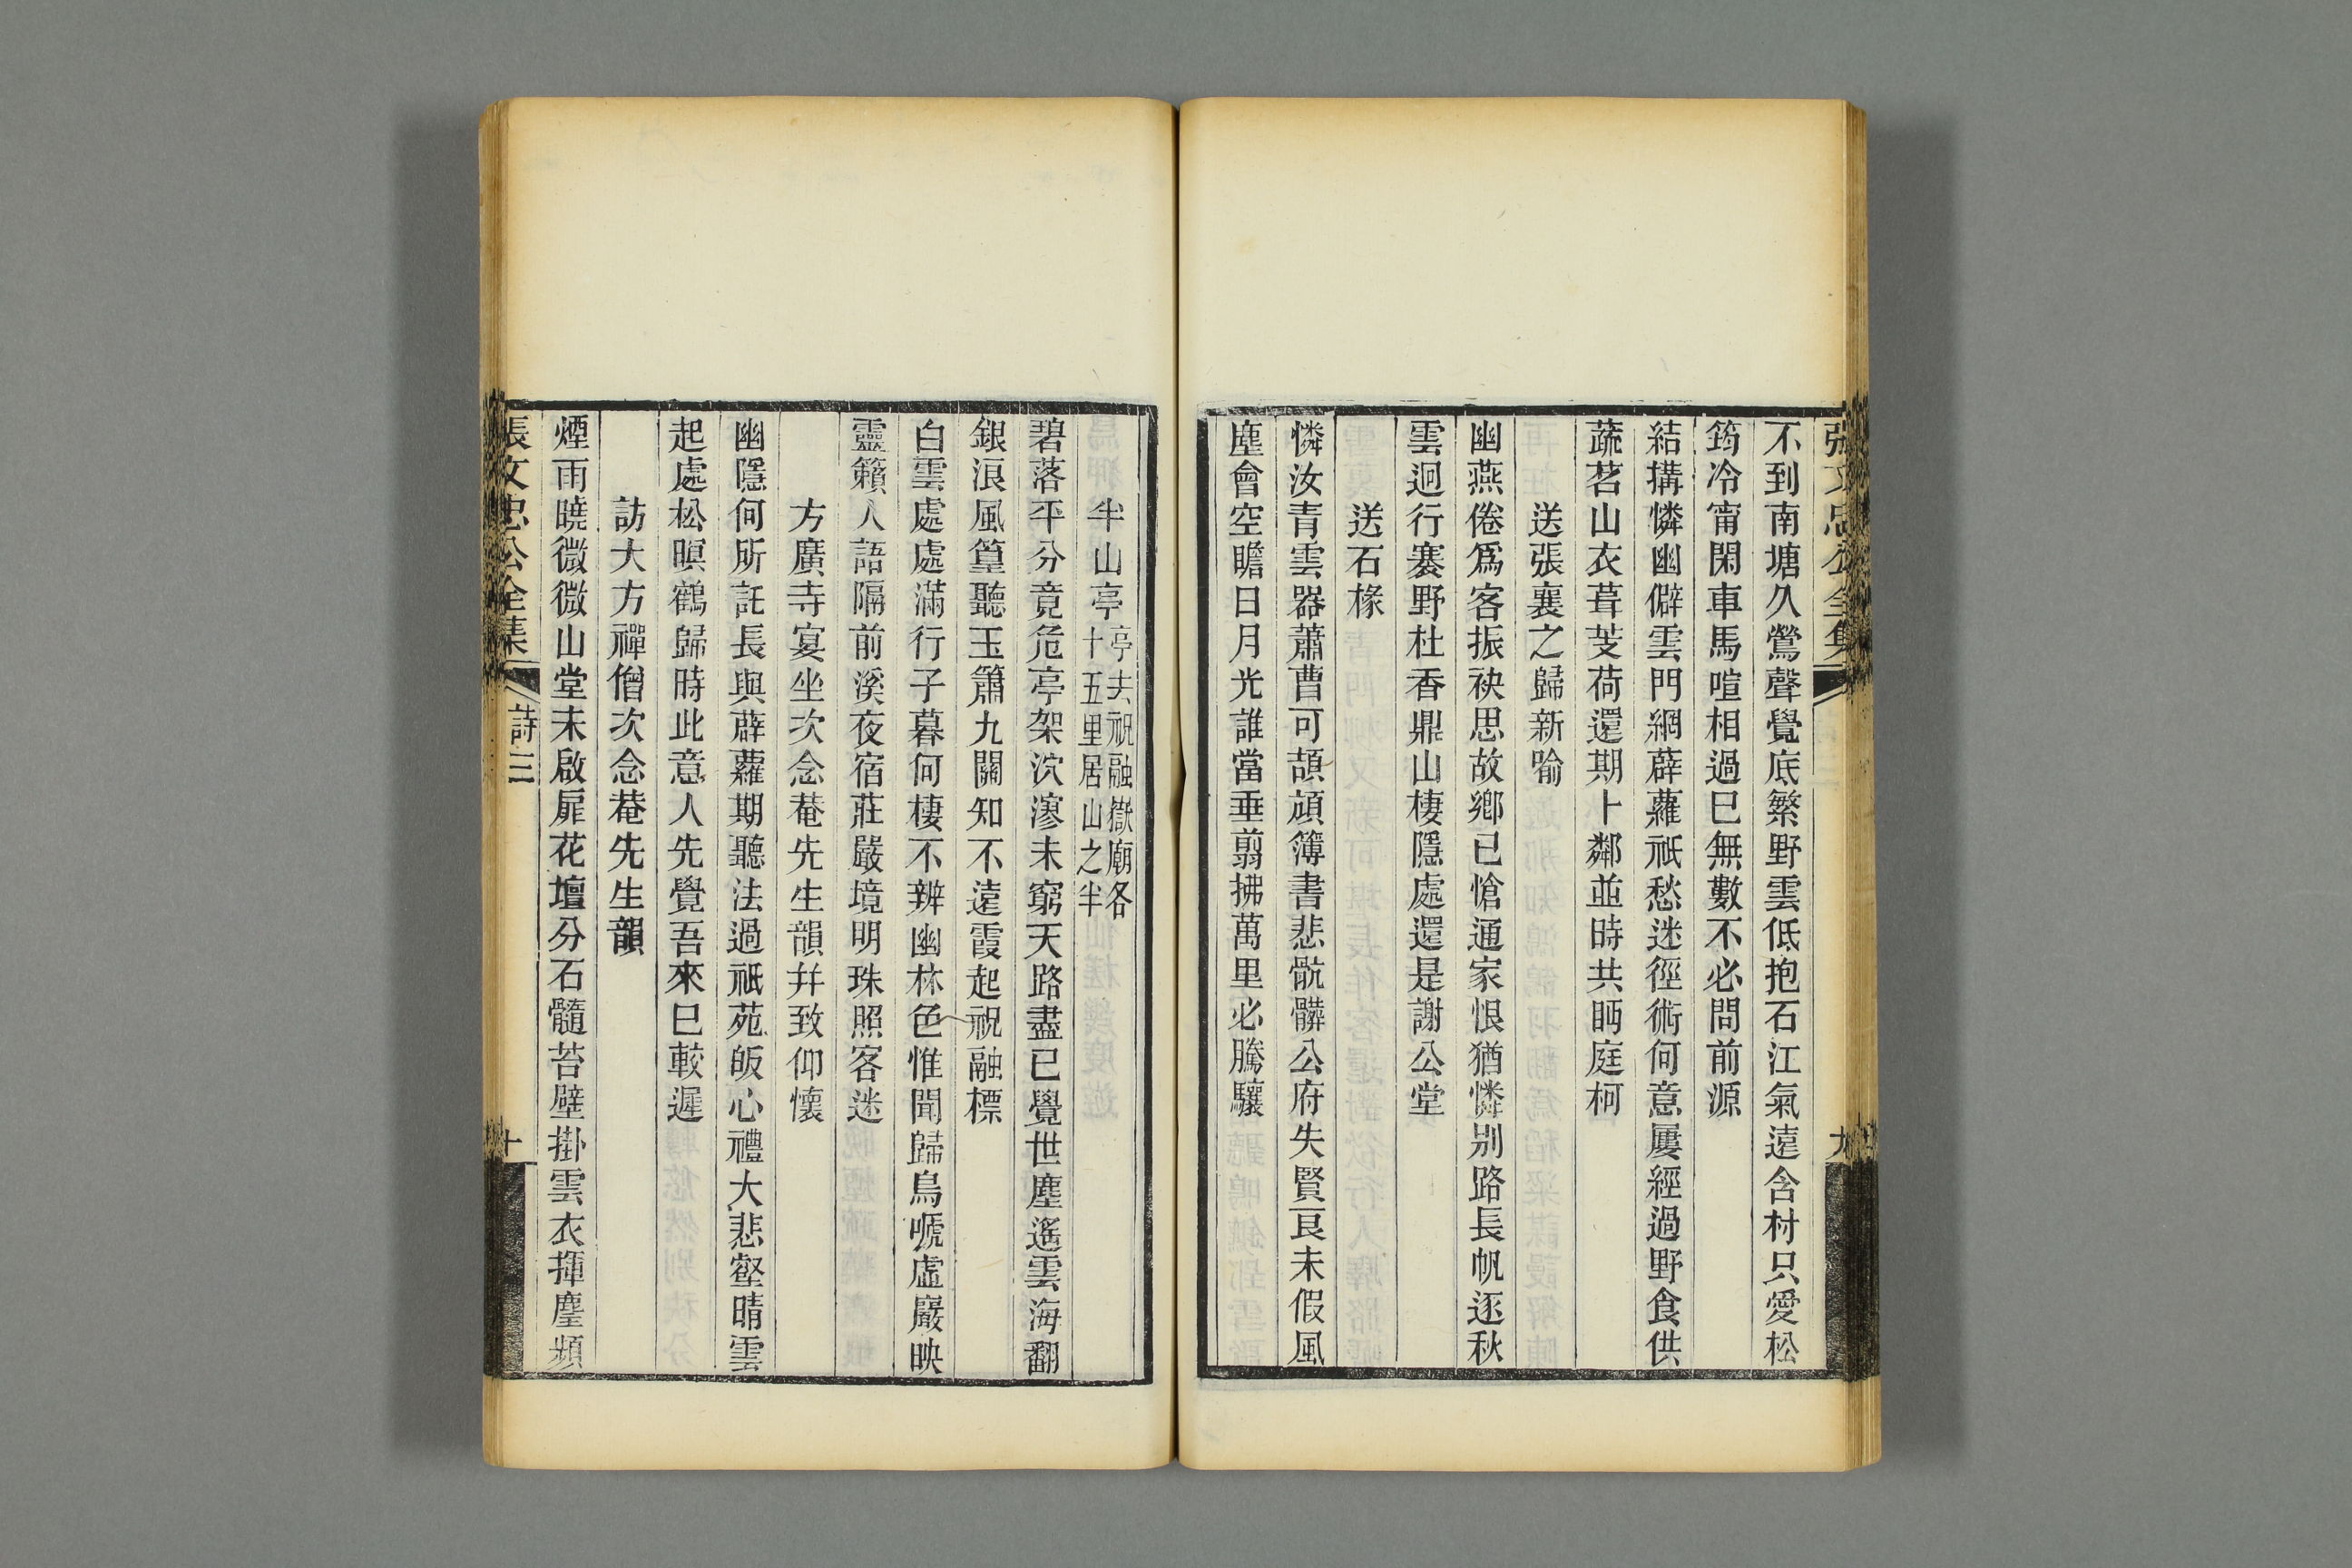 張文忠公全集
九
不到南塘久鶯聲覺底繁野雲低抱石江氣遠含村只愛松
筠冷甯閑車馬喧相過巳無數不必問前源
結搆憐幽僻雲門網薜蘿祇愁迷徑術何意屢經過野食供
蔬茗山衣葺芰荷還期卜鄰並時共眄庭柯
送張襄之歸新喻
幽燕倦爲客振袂思故鄉已愴通家恨猶憐別路長帆逐秋
雲迥行褰野杜香鼎山棲隱處還是謝公堂
送石椽
憐汝青雲器蕭曹可頡頏簿書悲骯髒公府失賢良未假風
塵會空瞻日月光誰當垂翦拂萬里必騰驤
半山亭
亭去祝融嶽廟各
十五里居山之半
碧落平分竟危亭架泬漻未窮天路盡已覺世塵遙雲海翻
銀浪風篁聽玉簫九關知不遠霞起祝融標
白雲處處滿行子暮何棲不辨幽林色惟聞歸鳥嗁虛巖映
靈籟人語隔前溪夜宿莊嚴境明珠照客迷
方廣寺宴坐次念菴先生韻幷致仰懷
幽隱何所託長與薜蘿期聽法過祇苑皈心禮大悲壑晴雲
起處松暝鶴歸時此意人先覺吾來巳較遲
訪大方禪僧次念菴先生韻
煙雨曉微微山堂未啟扉花壇分石髓苔壁掛雲衣揮麈頻
張文忠公全集
詩三
十